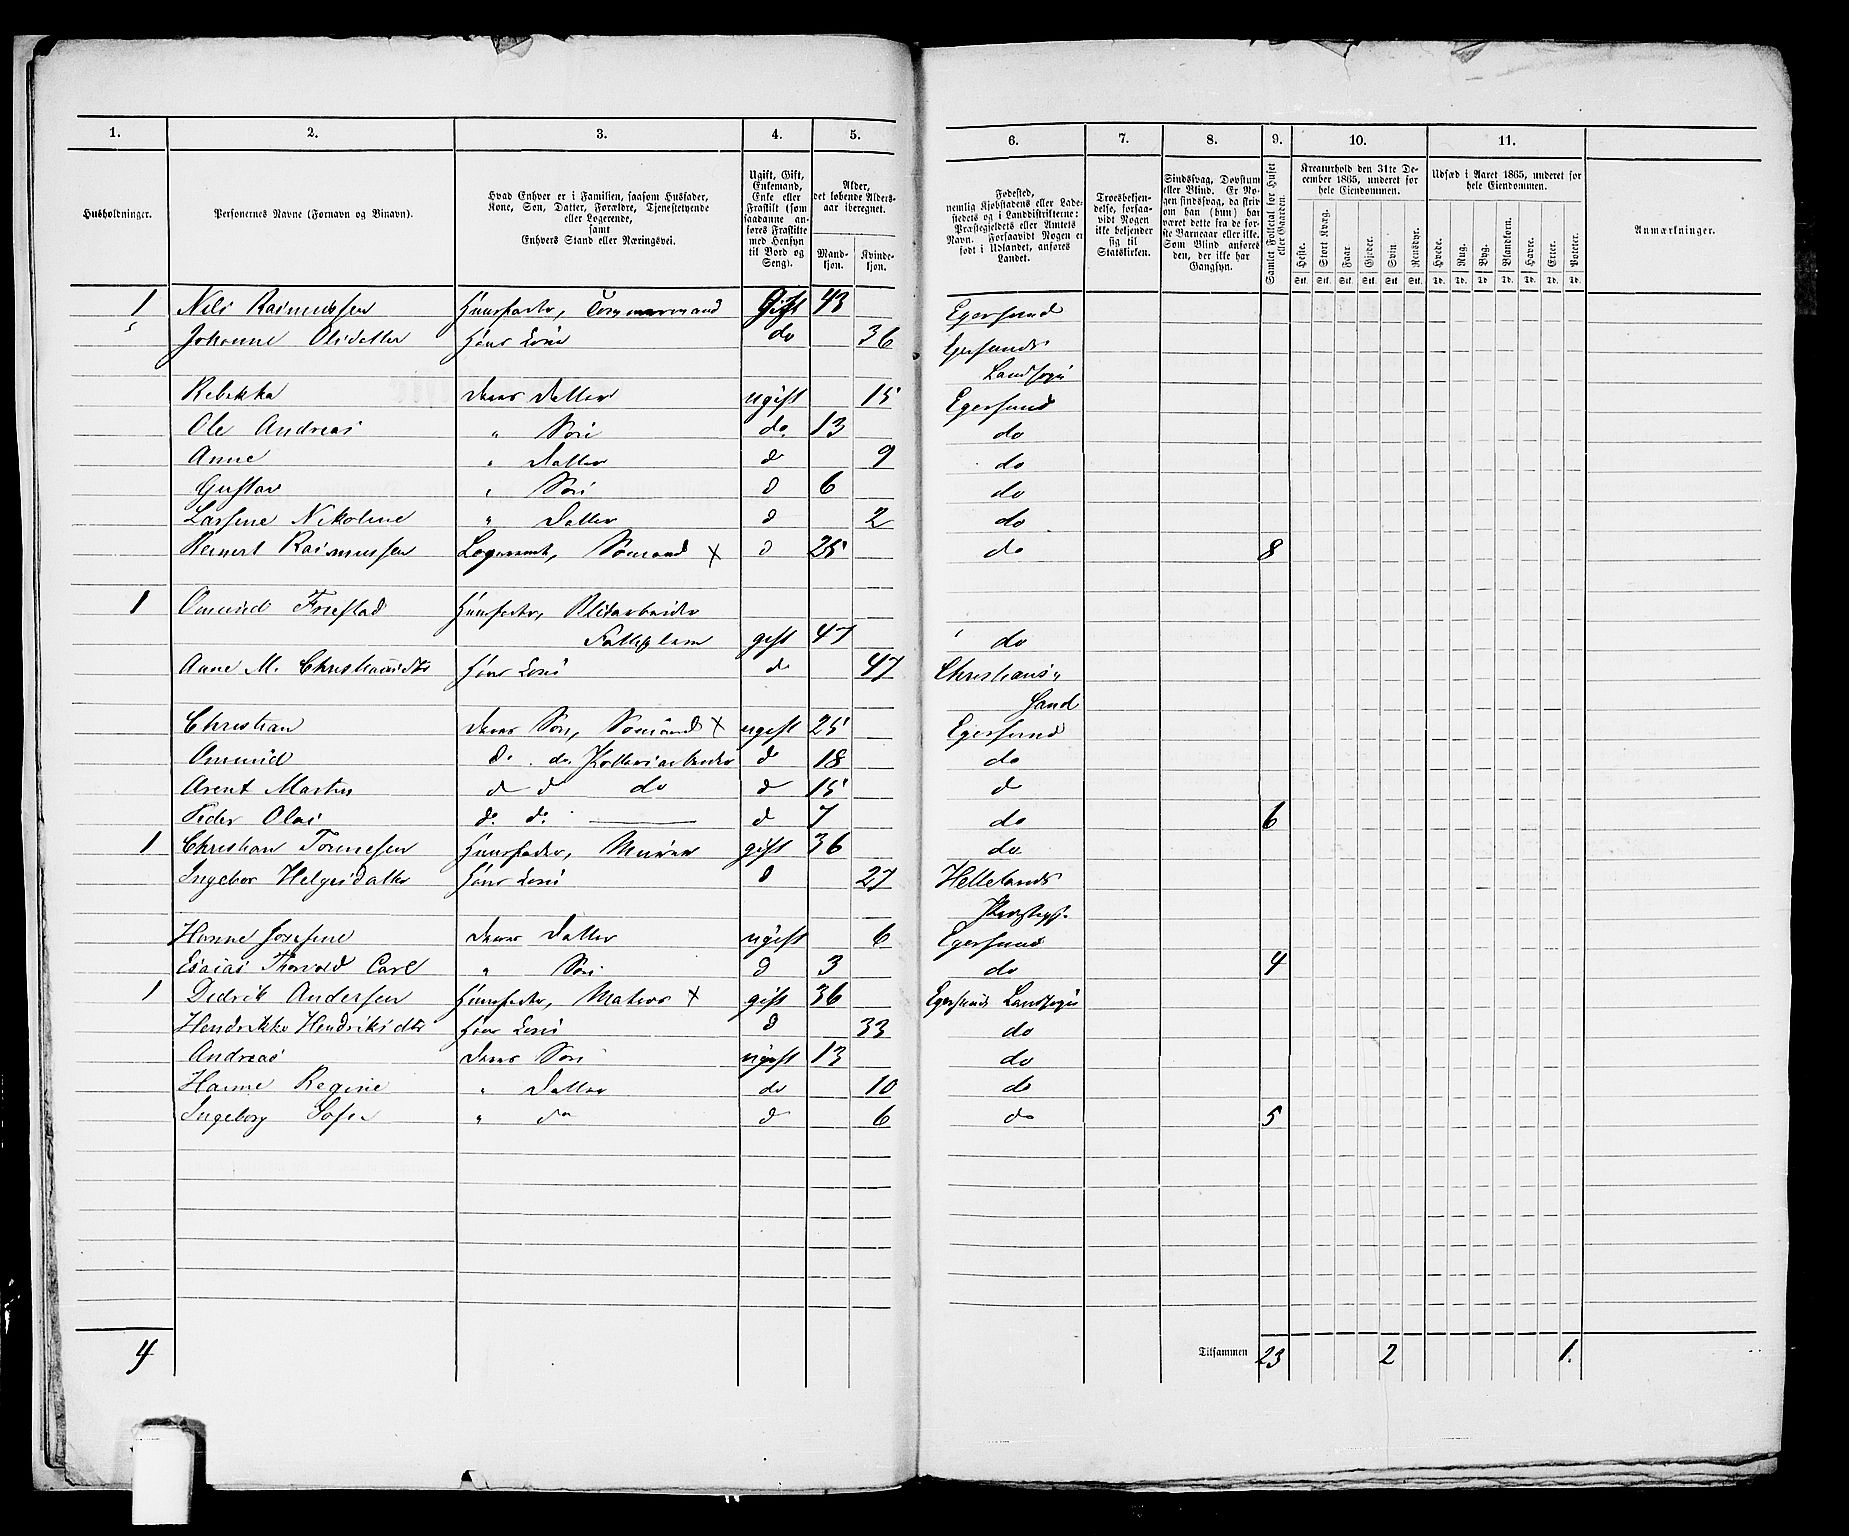 1. 2. 3. 4. 5. 6. 7. 8. 9. 10. 11.
Husholdninger. Personernes Navne (Fornavn og Binavn). Hvad Enhver er i Familien, saasom Husfader, Kone, Søn, Datter, Forældre, Tjenestetyende eller Logerende, samt Enhvers Stand eller Næringsvei. Ugift, Gift, Enkemand, Enke eller Fraskilt (som saadanne anføres Fraskilte med Hensyn til Bord og Seng). Alder, det løbende Aldersaar iberegnet. Mandkjøn. Kvindekjøn.
Fødested, nemlig Kjøbstadens eller Ladestedets og i Landdistrikterne: Præstegjeldets eller Amtets Navn. Forsaavidt Nogen er født i Udlandet, anføres Landet. Troesbekjendelse, forsaavidt Nogen ikke bekjender sig til Statskirken. Sindssvag, Døvstum eller Blind. Er Nogen sindssvag, da skriv om han (hun) har været dette fra de første Barneaar eller ikke. Som Blind anføres den, der ikke har Gangsyn. Samlet Folketal for Huset eller Gaarden. Kreaturhold den 31te December 1865, underet for hele Eiendommen. Udsæd i Aaret 1865, underet for hele Eiendommen. Anmærkninger.
Heste. Stort Kvæg. Faar Gjeder. Svin Rensdyr. Hvede. Rug. Byg. Blandkorn. Havre. Erter. Poteter.
Stk. Stk. Stk. Stk. Stk. Stk. Td. Td. Td. Td. Td. Td. Td.
1 Nils Rasmussen Huusfader, Tømmermand Gift 43 Egersund
Johanne Olsdatter Hans Kone do 36 Egersunds
Landsogn
Rebekka Deres Datter ugift 15 Egersund
Ole Andreas " Søn do. 13 do
Anne " Datter d 9 do
Gustav " Søn d 6 do
Larsine Nikoline " Datter d 2 do
Reinert Rasmussen Logerende, Sømand x d 25 do 8
1 Omund Fuestad Huusfader,
gift 47 do
Anne M. Christiansdtr Hans Kone do 47 Christian's"
Sand
Christian Deres Søn, Sømand x ugift 25 Egersund
Ommund d. do. Potteriarbeider d 18 do
Arent Martin d d do d 15 d
Peder Olai d. d. d 7 do 6
1 Christian Tønnesen Huusfader, Murer gift 36 do
Ingebor Helgesdatter Hans Kone d 27 Hellelands
Præstegj.
Hanne Josefine Deres Datter ugift 6 Egersund
Esaias Thorvald Carl " Søn d 3 do 4
1 Didrik Andersen Huusfader, Matros x gift 36 Egersunds Landsogn
Hendrikke Hendriksdtr Hans Kone d 33 do
Andreas Deres Søn ugift 13 do
Hanne Regine " Datter do 10 do
Ingeborg Sofie " do d 6 do 5
4 Tilsammen 23 2 1.